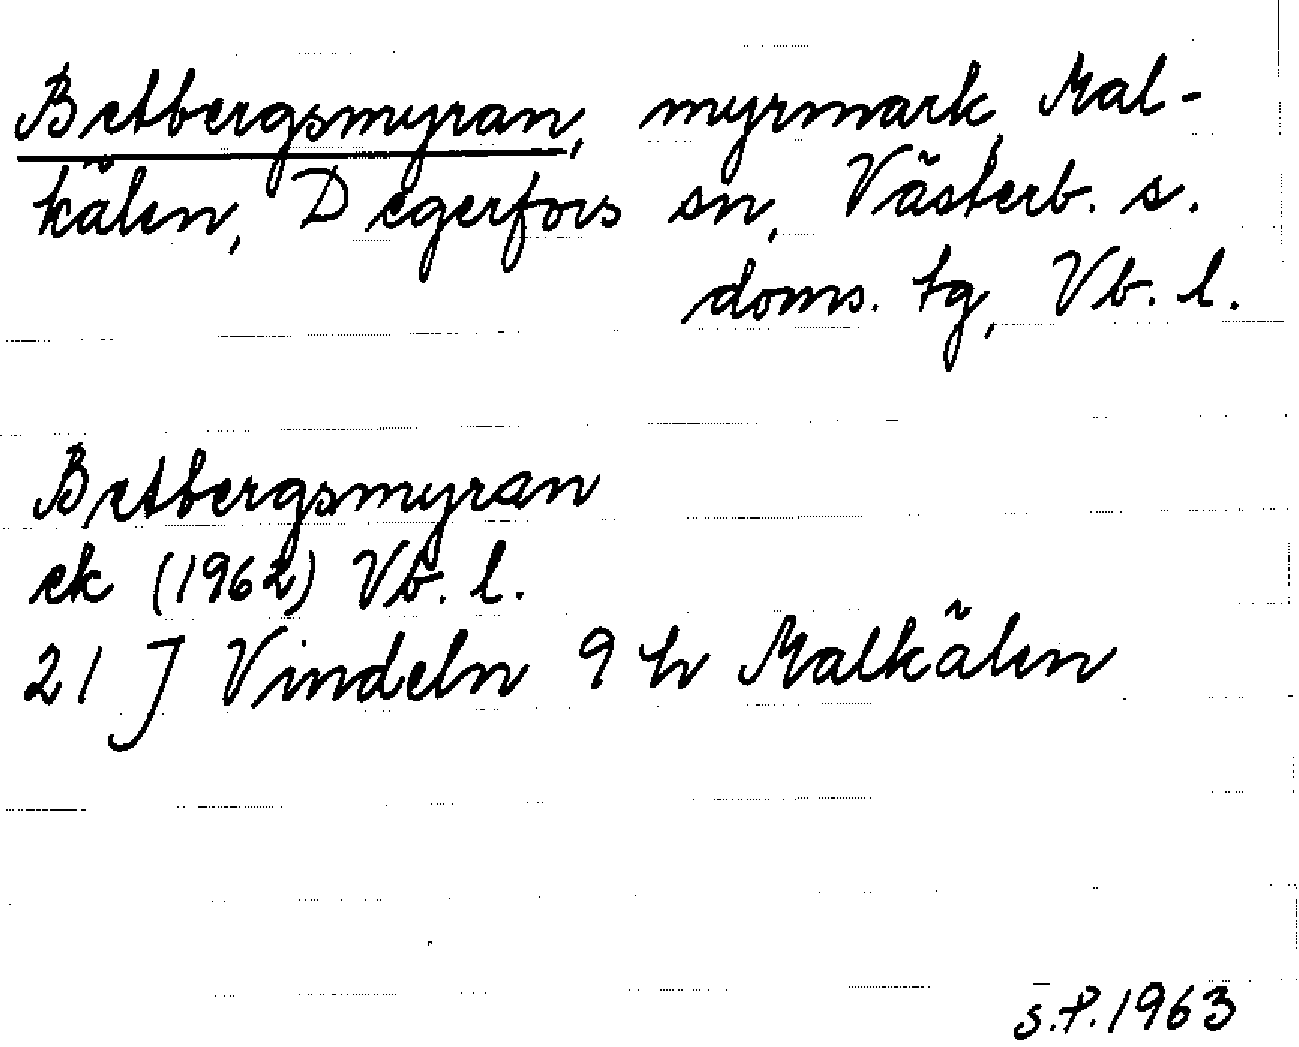 Betbergsmyran, myrmark, Mal-
kälen, Degerfors sn, Västerb. s.
doms. tg, Vb. l.
Betbergsmyran
ek (1962) Vb. l.
21 J Vindeln 9 h Malkälen
S.P. 1963